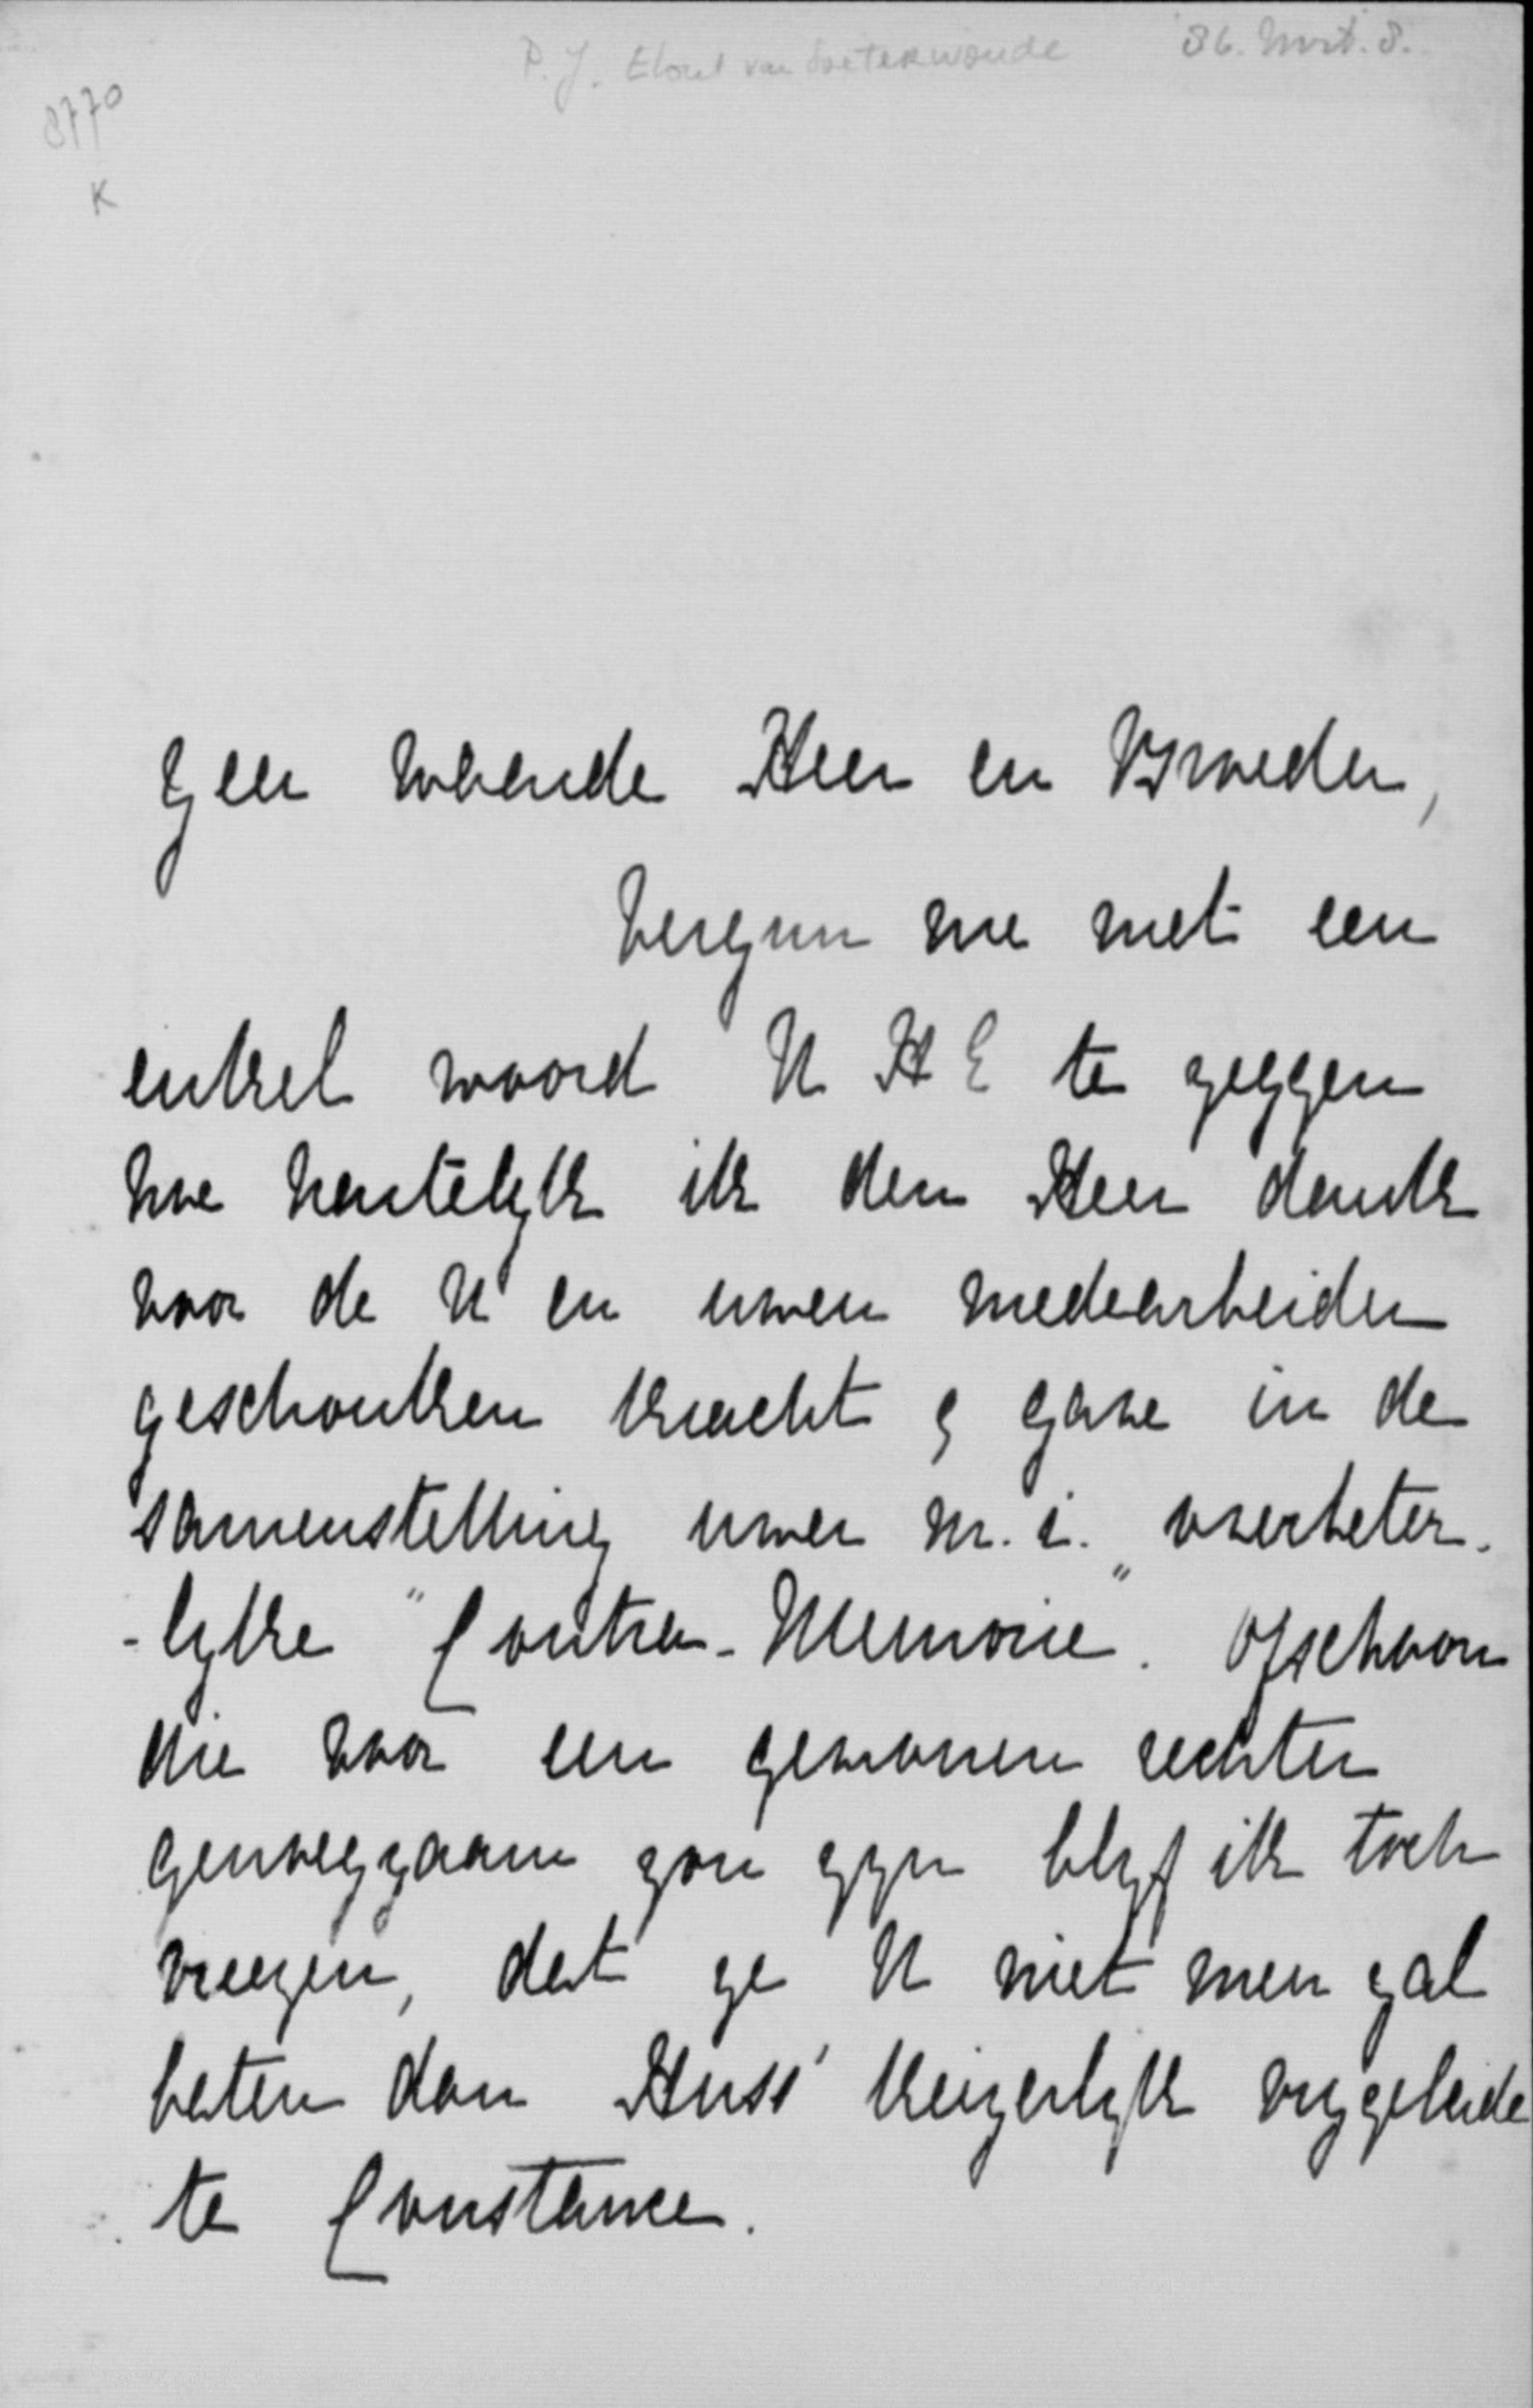 P. J. Elout van Soeterwoude 86. Mrt. 8.
8770
K
Zeer waarde Heer en Broeder,
Vergun me met een
enkel woord U H E te zeggen
hoe hartelyk ik den Heer dank
voor de U en uwen medearbeider
geschonken kracht & gave in de
samenstelling uwer m. i. „onverbeter-
-lyke" Contra-Memorie. Ofschoon
die voor een gewonen rechter
genoegzaam zou zyn blyf ik toch
vreezen, dat ze U niet meer zal
baten dan Huss' keizerlyk vrygeleide
te Constance.